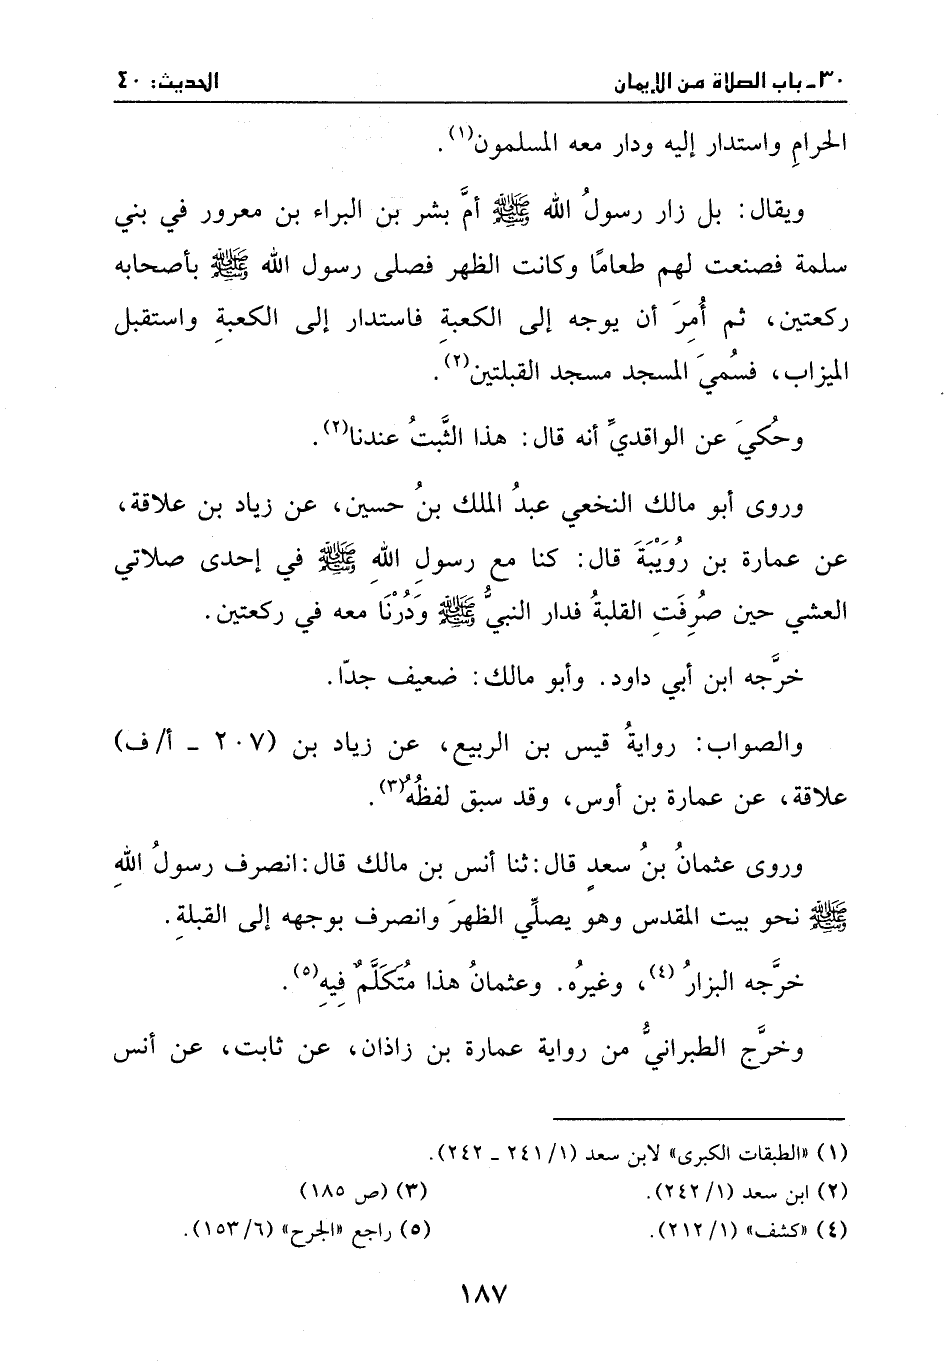 ٣٠ـ باب الصلاة من الإيمان الحديث: ٤٠
الحرامِ واستدار إليه ودار معه المسلمون(١).
ويقال: بل زار رسولُ الله ﷺ أمَّ بشر بن البراء بن معرور في بني
سلمة فصنعت لهم طعامًا وكانت الظهر فصلى رسول الله ﷺ بأصحابه
ركعتين، ثم أُمِرَ أن يوجه إلى الكعبةِ فاستدار إلى الكعبةِ واستقبل
الميزاب، فسُميَ المسجد مسجد القبلتين(٢).
وحُكيَ عن الواقديِّ أنه قال: هذا الثَّبتُ عندنا(٢).
وروى أبو مالك النخعي عبدُ الملك بنُ حسين، عن زياد بن علاقة،
عن عمارة بن رُوَيْبَةَ قال: كنا مع رسولِ اللهِ ﷺ في إحدى صلاتي
العشي حين صُرِفَتِ القلبةُ فدار النبيُّ ﷺ وَدُرْنَا معه في ركعتين.
خرَّجه ابن أبي داود. وأبو مالك: ضعيف جدّا.
والصواب: روايةُ قيس بن الربيع، عن زياد بن (٢٠٧ ـ أ/ ف)
علاقة، عن عمارة بن أوس، وقد سبق لفظُهُ(٣).
وروى عثمانُ بنُ سعدٍ قال: ثنا أنس بن مالك قال: انصرف رسولُ اللهِ
ﷺ نحو بيت المقدس وهو يصلِّي الظهرَ وانصرف بوجهه إلى القبلةِ.
خرَّجه البزارُ(٤)، وغيرُه. وعثمانُ هذا مُتَكَلَّمٌ فِيهِ(٥).
وخرَّج الطبرانيُّ من رواية عمارة بن زاذان، عن ثابت، عن أنس
(١) «الطبقات الكبرى» لابن سعد (١/ ٢٤١ ـ ٢٤٢).
(٢) ابن سعد (١/ ٢٤٢). (٣) (ص ١٨٥)
(٤) «كشف» (١/ ٢١٢). (٥) راجع «الجرح» (٦/ ١٥٣).
١٨٧